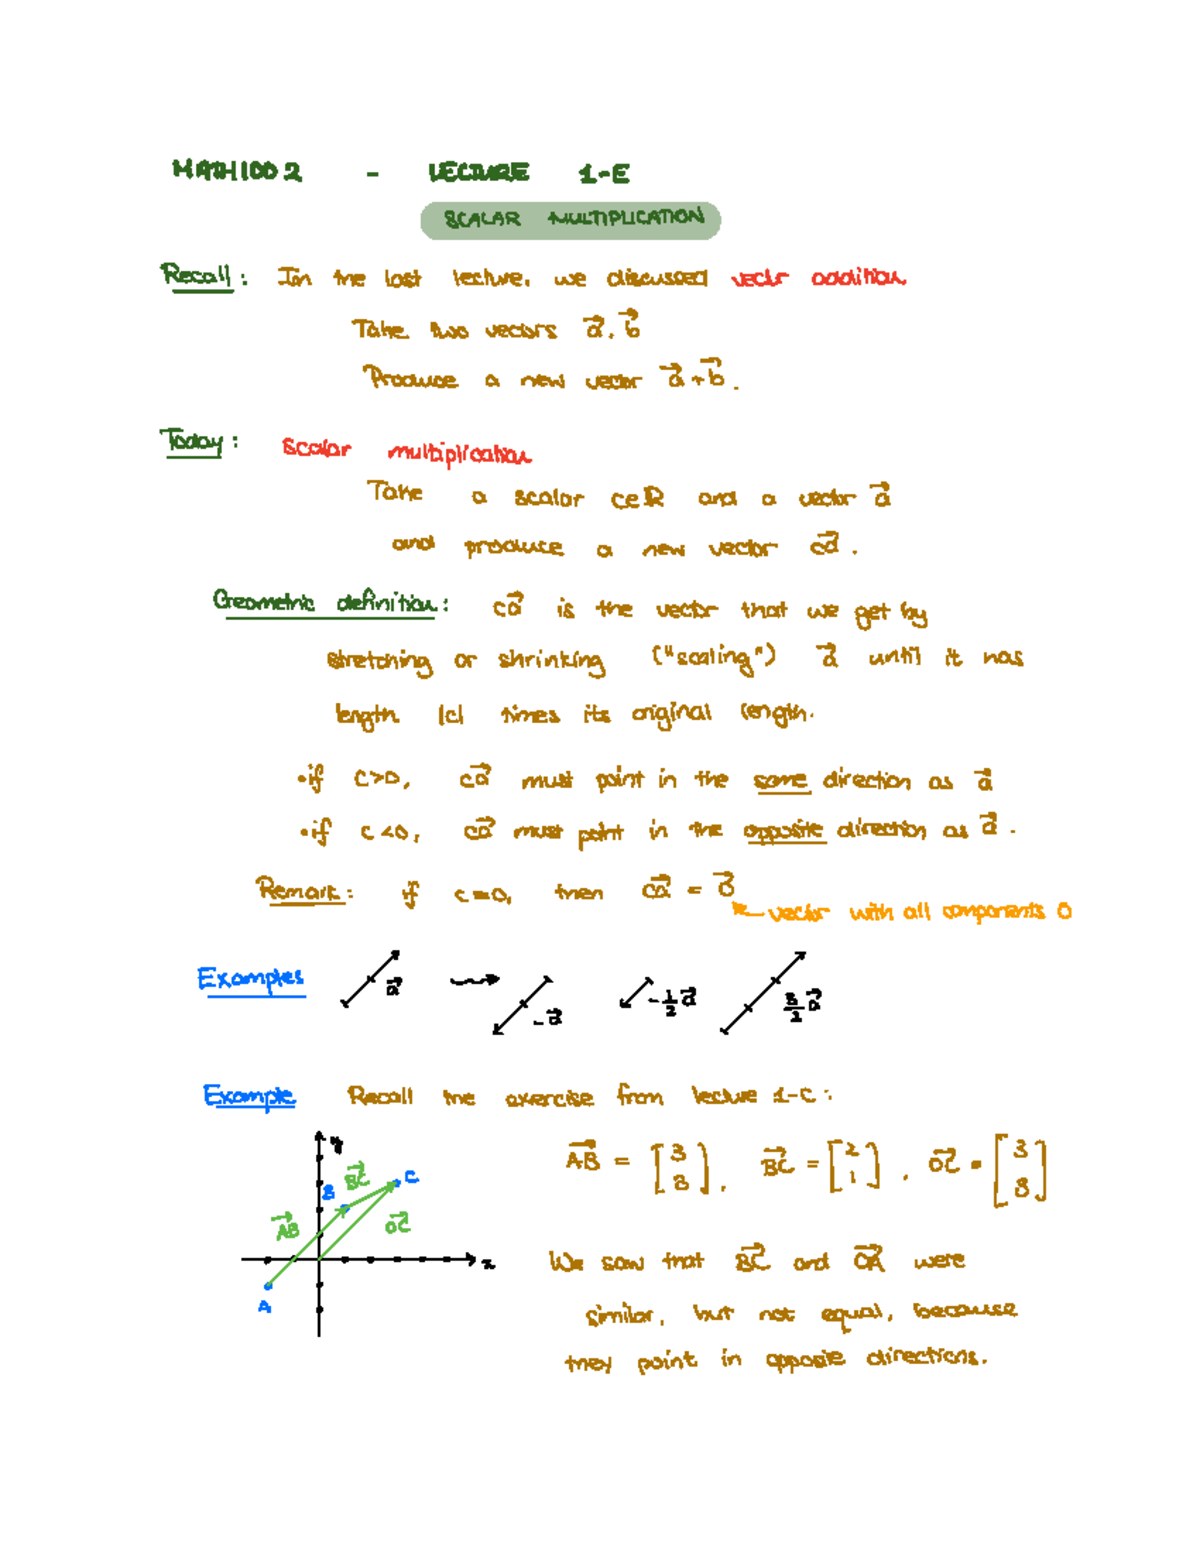 MATH1002 - LECTURE 1-E
SCALAR MULTIPLICATION
Recall: In the last lecture, we discussed vector addition
Take two vectors a⃗, b⃗
Produce a new vector a⃗+b⃗.
Today: Scalar multiplication
Take a scalar c∈ℝ and a vector a⃗
and produce a new vector ca⃗.
Geometric definition: ca⃗ is the vector that we get by
stretching or shrinking ("scaling") a⃗ until it has
length |c| times its original length.
• if c>0, ca⃗ must point in the same direction as a⃗
• if c<0, ca⃗ must point in the opposite direction as a⃗.
Remark: if c=0, then ca⃗ = 0⃗
vector with all components 0
Examples a⃗ -a⃗ -1/2 a⃗ 3/2 a⃗
Example Recall the exercise from lecture 1-C:
y
AB⃗ = [3 3], BC⃗ = [2 1], OC⃗ = [3 3]
B BC⃗ C
AB⃗ OC⃗
x
A
We saw that BC⃗ and OA⃗ were
similar, but not equal, because
they point in opposite directions.